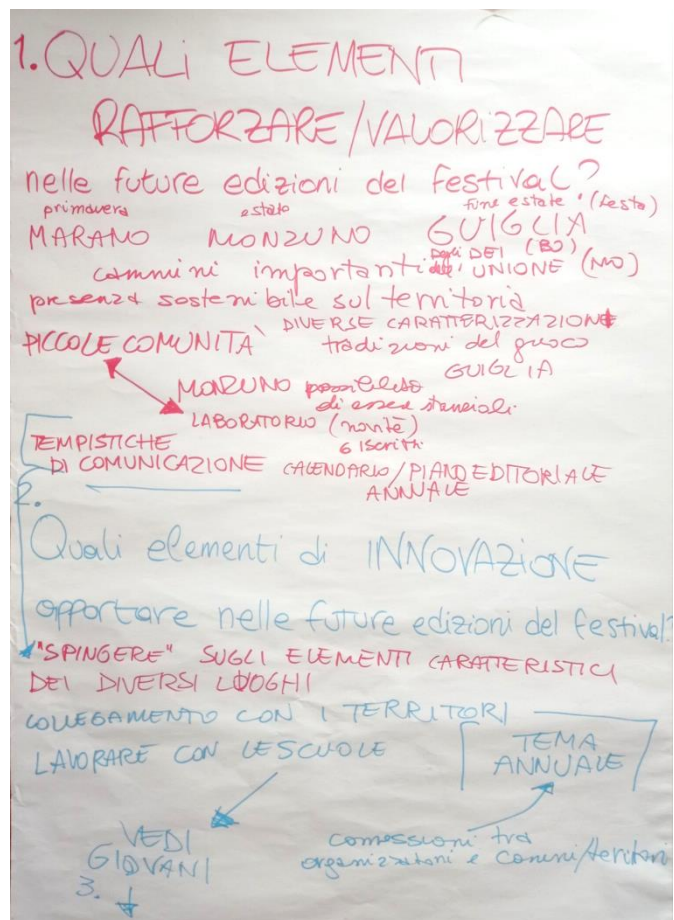 1. QUALI ELEMENTI
RAFFORZARE/VALORIZZARE
nelle future edizioni del festival?
primavera estate fine estate (festa)
MARANO MONZUNO GUIGLIA
degli DEI (BO)
cammini importanti UNIONE (MO)
presenza sostenibile sul territorio
DIVERSE CARATTERIZZAZIONI
PICCOLE COMUNITA' tradizioni del gioco
GUIGLIA
MONZUNO
di essere stanziali
LABORATORIO (novità)
6 iscritti
TEMPISTICHE
DI COMUNICAZIONE CALENDARIO/PIANO EDITORIALE
ANNUALE
2.
Quali elementi di INNOVAZIONE
apportare nelle future edizioni del festival?
"SPINGERE" SUGLI ELEMENTI CARATTERISTICI
DEI DIVERSI LUOGHI
COLLEGAMENTO CON I TERRITORI
LAVORARE CON LE SCUOLE
TEMA
ANNUALE
VEDI
GIOVANI
3.
connessioni tra
organizzatori e comuni/territori